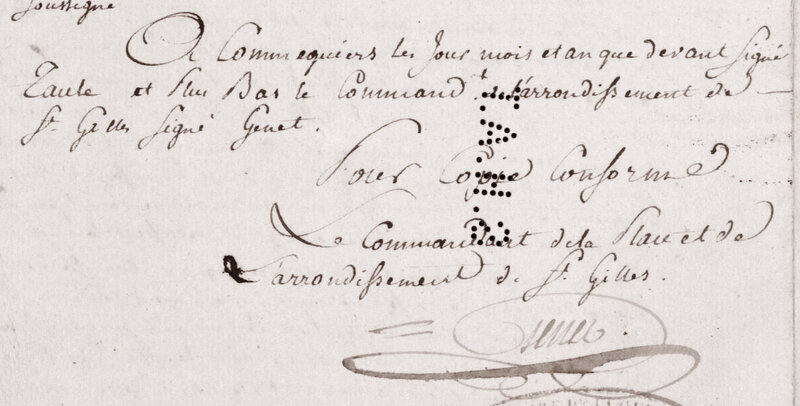 soussigné
A Commequiers les Jour mois et an que devant Signé
Taule et Plus Bas le Command.t L'arrondissement de
St Gilles Signé Genet.
Pour Copie Conforme
Le Commandant de la Place et de
L'arrondissement de St Gilles.
Genet